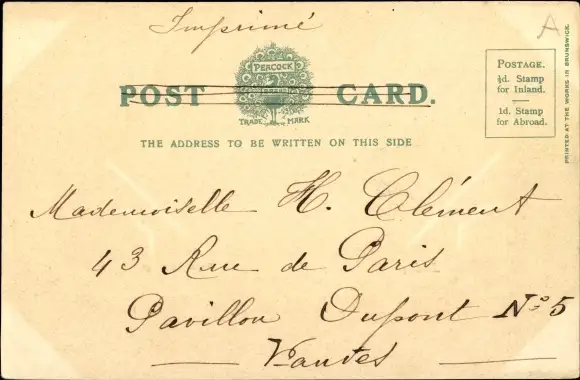 Imprimé
A
PEACOCK
BRAND
TRADE MARK
POST CARD.
POSTAGE.
½d. Stamp
for Inland.
1d. Stamp
for Abroad.
PRINTED AT THE WORKS IN BRUNSWICK.
THE ADDRESS TO BE WRITTEN ON THIS SIDE
Mademoiselle H. Clément
43 Rue de Paris
Pavillon Dupont No 5
Vanves